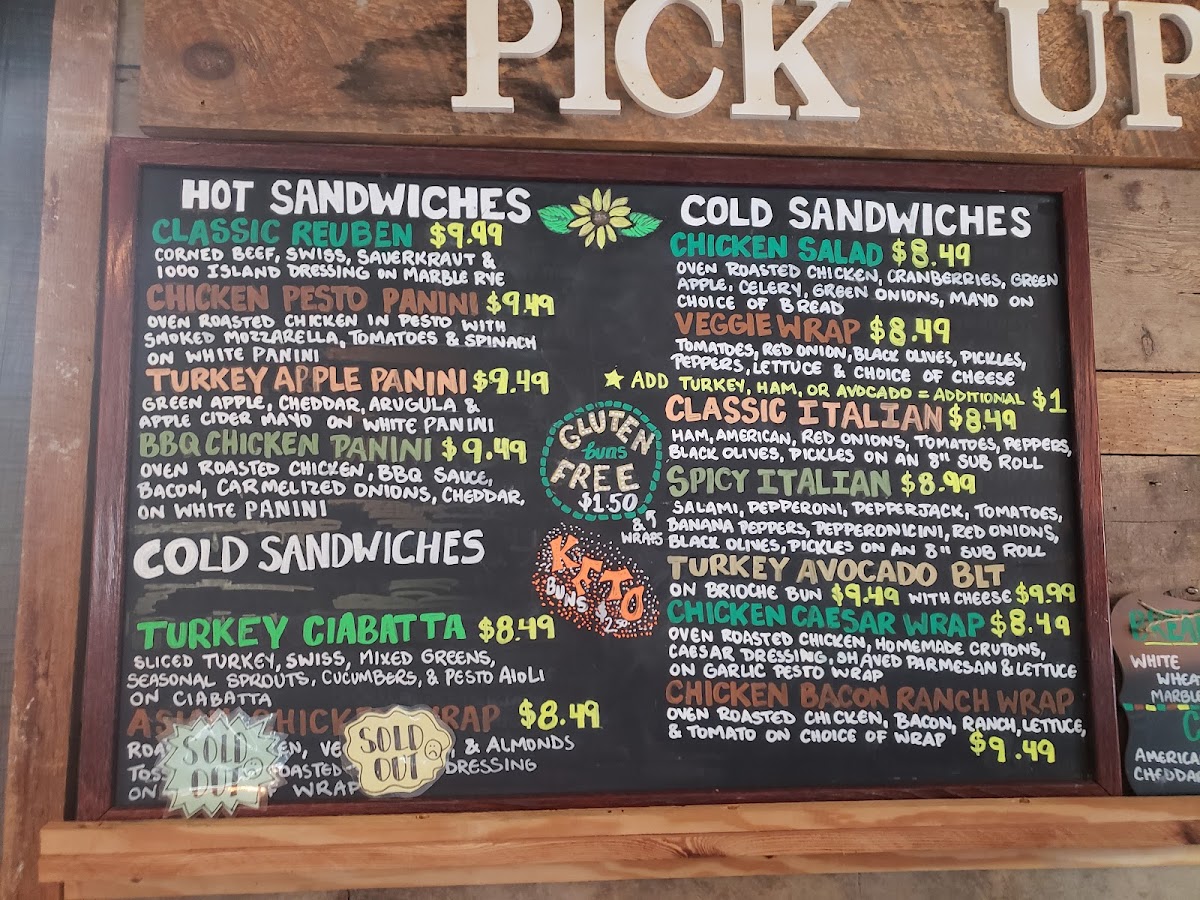 PICK UP
HOT SANDWICHES
CLASSIC REUBEN $9.99
CORNED BEEF, SWISS, SAUERKRAUT &
1000 ISLAND DRESSING ON MARBLE RYE
CHICKEN PESTO PANINI $9.49
OVEN ROASTED CHICKEN IN PESTO WITH
SMOKED MOZZARELLA, TOMATOES & SPINACH
ON WHITE PANINI
TURKEY APPLE PANINI $9.49
GREEN APPLE, CHEDDAR, ARUGULA &
APPLE CIDER MAYO ON WHITE PANINI
BBQ CHICKEN PANINI $9.49
OVEN ROASTED CHICKEN, BBQ SAUCE,
BACON, CARMELIZED ONIONS, CHEDDAR,
ON WHITE PANINI
COLD SANDWICHES
TURKEY CIABATTA $8.49
SLICED TURKEY, SWISS, MIXED GREENS,
SEASONAL SPROUTS, CUCUMBERS, & PESTO AIOLI
ON CIABATTA
WRAP $8.49
& ALMONDS
DRESSING
ON WRAP
SOLD
OUT
SOLD
OUT
GLUTEN
buns
FREE
$1.50
&
WRAPS
KETO
BUNS $2.50
COLD SANDWICHES
CHICKEN SALAD $8.49
OVEN ROASTED CHICKEN, CRANBERRIES, GREEN
APPLE, CELERY, GREEN ONIONS, MAYO ON
CHOICE OF BREAD
VEGGIE WRAP $8.49
TOMATOES, RED ONION, BLACK OLIVES, PICKLES,
PEPPERS, LETTUCE & CHOICE OF CHEESE
ADD TURKEY, HAM, OR AVOCADO = ADDITIONAL $1
CLASSIC ITALIAN $8.49
HAM, AMERICAN, RED ONIONS, TOMATOES, PEPPERS,
BLACK OLIVES, PICKLES ON AN 8" SUB ROLL
SPICY ITALIAN $8.99
SALAMI, PEPPERONI, PEPPERJACK, TOMATOES,
BANANA PEPPERS, PEPPERONICINI, RED ONIONS,
BLACK OLIVES, PICKLES ON AN 8" SUB ROLL
TURKEY AVOCADO BLT
ON BRIOCHE BUN $9.49 WITH CHEESE $9.99
CHICKEN CAESAR WRAP $8.49
OVEN ROASTED CHICKEN, HOMEMADE CRUTONS,
CAESAR DRESSING, SHAVED PARMESAN & LETTUCE
ON GARLIC PESTO WRAP
CHICKEN BACON RANCH WRAP
OVEN ROASTED CHICKEN, BACON, RANCH, LETTUCE,
& TOMATO ON CHOICE OF WRAP $9.49
WHITE
WHEA
MARBL
C
AMERICA
CHEDDA